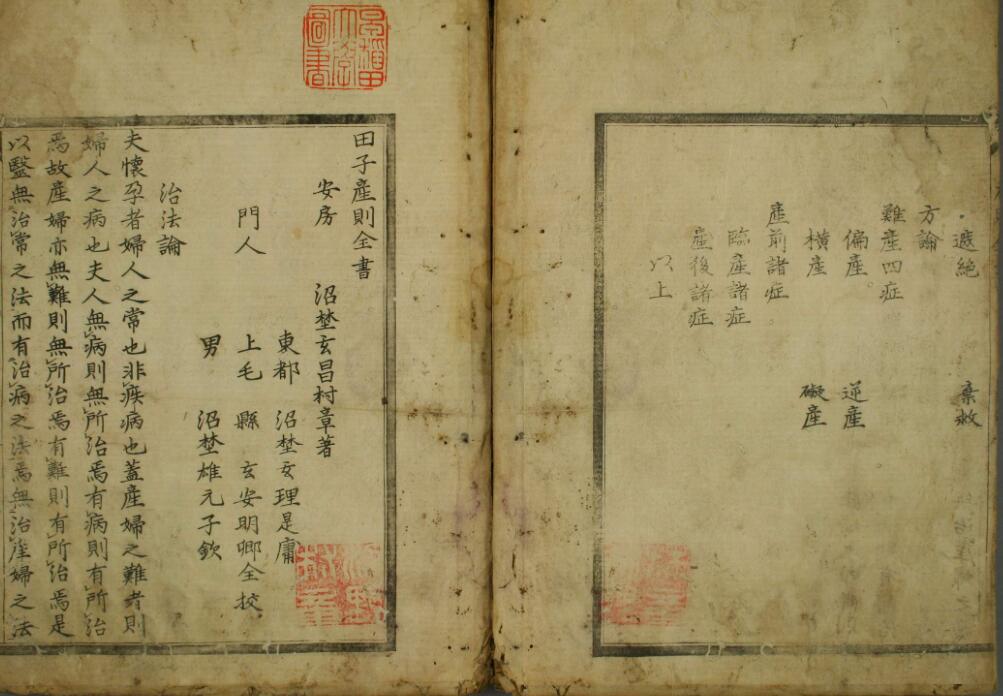 遞絶 棄救
方論
難産四症
偏産 逆産
横産 礙産
産前諸症
臨産諸症
産後諸症
以上
田子産則全書
安房 沼埜玄昌村章著
東都 沼埜玄理是庸
門人 上毛 縣玄安明卿仝挍
男 沼埜雄元子欽
治法論
夫懷孕者婦人之常也非疾病也蓋産婦之難者則
婦人之病也夫人無病則無所治焉有病則有所治
焉故産婦亦無難則無所治焉有難則有所治焉是
以毉無治常之法而有治病之法焉無治産婦之法
早稲田大学圖書